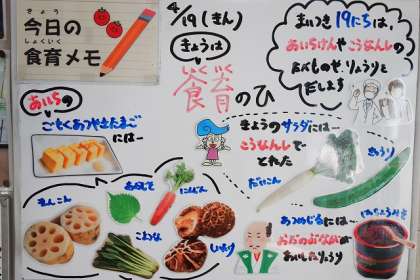 きょう
今日の
しょくいく
食育メモ
4/19(きん)
きょうは
しょくいく
食育のひ
まいつき19にちは、
あいちけんやこうなんしの
たべものや、りょうりを
だします
あいちの
ごもくあつやきたまご
には…
れんこん
にんじん
こまつな
しいたけ
きょうのサラダには…
こうなんしで
とれた
だいこん
きゅうり
あつめじるには…
おだのぶながが
あいしたりょうり